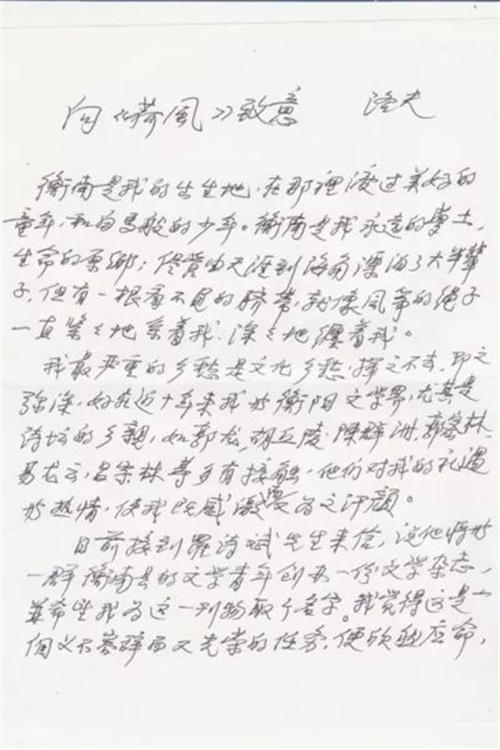 向《荷風》致意 洛夫
衡南是我的出生地,在那裡渡过美好的
童年,和白馬般的少年。衡南是我永遠的鄉土,
生命的原鄉;儘管由天涯到海角漂泊了大半輩
子,但有一根看不見的臍帶,就像風箏的繩子
一直緊緊地牽着我,深深地纏着我。
我最严重的乡愁是文化乡愁,揮之不去,卻之
弥深,好在近十年来我与衡阳文学界,尤其是
詩坛的乡親,如郭龙,胡丘陵,陳群洲,郭密林,
易龙云,吕宗林等多有接触,他们对我的礼遇
与热情,使我既感激又為之汗颜。
日前接到羅诗斌先生来信,说他将与
一群衡南县的文学青年创办一份文学杂志,
並希望我为这一刊物取个名字。我觉得这是一
個义不容辞而又光荣的任务,便欣然应命,